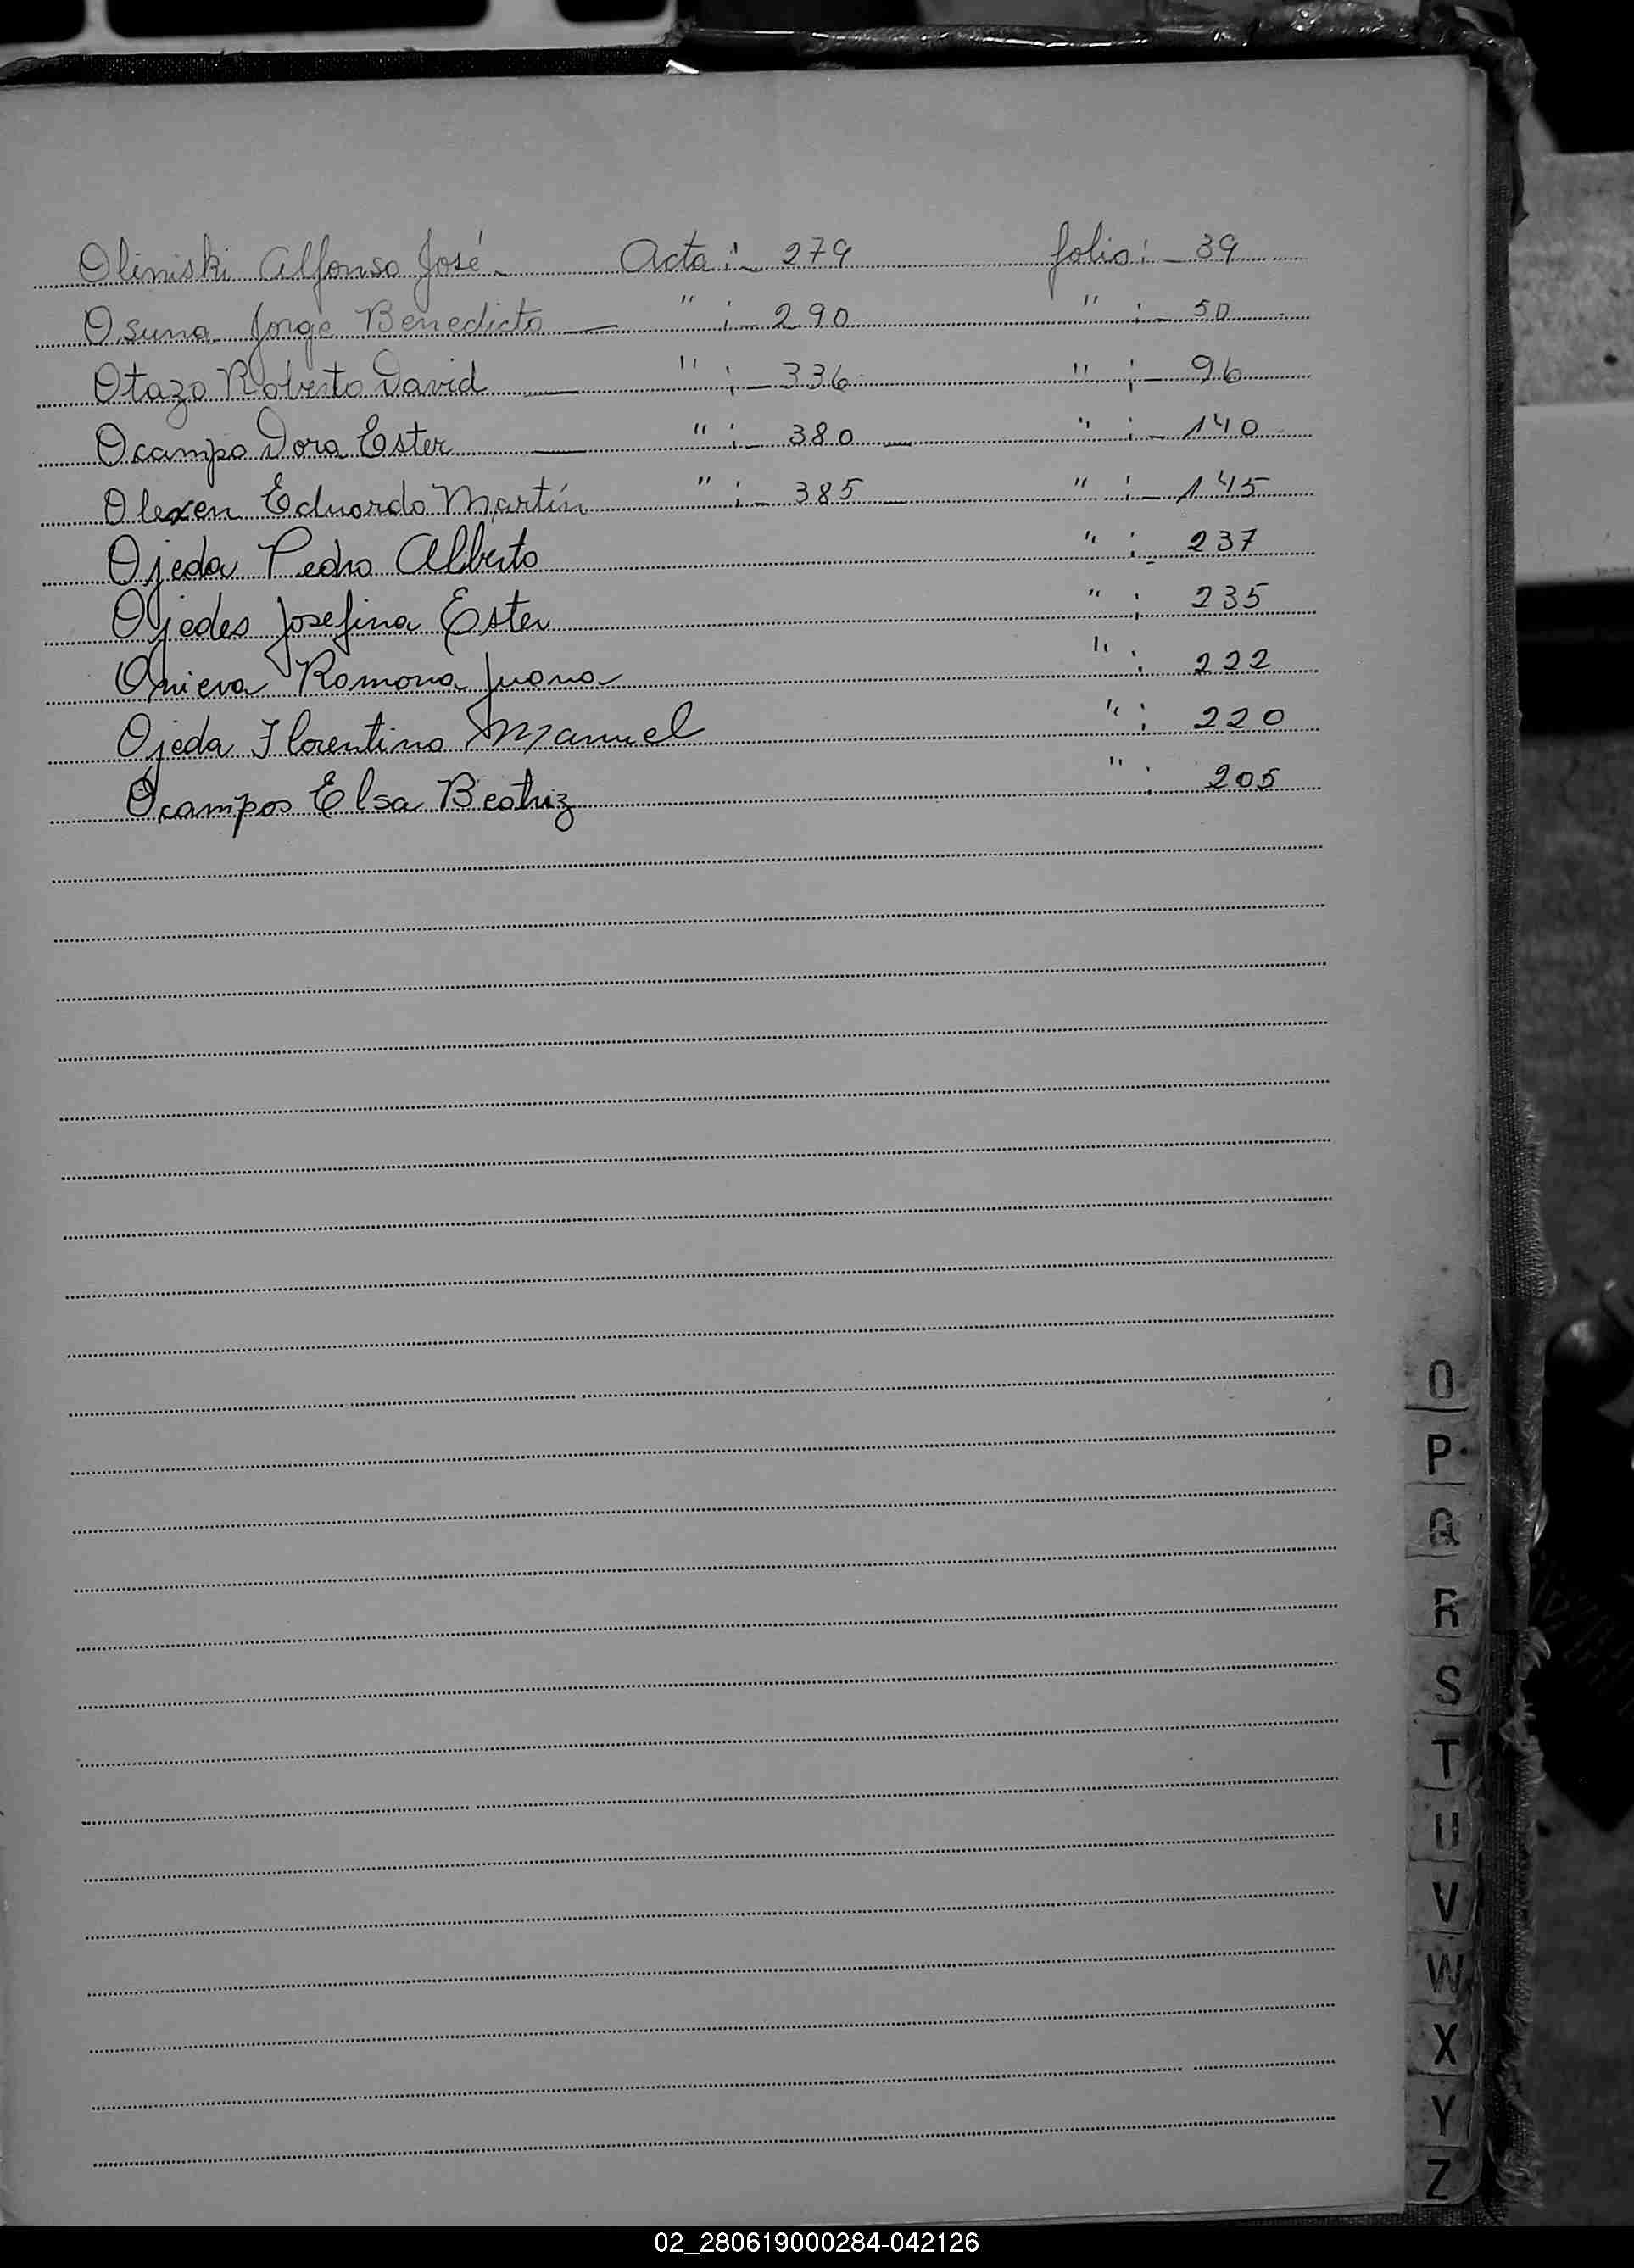 Oliniski Alfonso José - Acta :- 279 folio : - 39
Osuna Jorge Benedicto — " :- 290 " :- 50
Otazo Roberto David — " ; - 336 " ; - 96
Ocampo Dora Ester — " :- 380 — " : - 140
Olexen Eduardo Martín " ; - 385 — " : - 145
Ojeda Pedro Alberto " : - 237
Ojedes Josefina Ester " ; 235
Onieva Romona Juana " : 222
Ojeda Florentino Manuel " ; 220
Ocampos Elsa Beatriz " : 205
O
P
Q
R
S
T
U
V
W
X
Y
Z
02_280619000284-042126